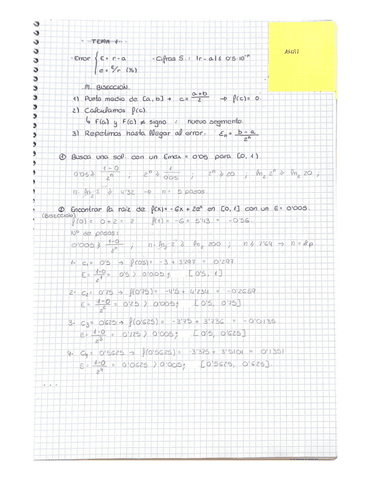 - TEMA 1 -
- Error { E = r - a
e = E/r (%)
- Cifras S : |r - a| ≤ 0'5·10⁻ⁿ
M. BISECCIÓN.
1) Punto medio de [a, b] → c = (a+b)/2 → f(c) = 0
2) Calculamos f(c).
↳ f(a) y f(c) ≠ signo : nuevo segmento
3) Repetimos hasta llegar al error. Eₙ = (b - a)/2ⁿ
① Busca una sol con un Emax = 0'05 para [0, 1)
0'05 ≥ (1-0)/2ⁿ ; 2ⁿ ≥ 1/0'05 ; 2ⁿ ≥ 20 , ln₂ 2ⁿ ≥ ln₂ 20 ,
n · ln₂ 2 ≥ 4'32 → n = 5 pasos
② Encontrar la raíz de f(x) = -6x + 2eˣ en [0, 1] con un E = 0'005.
(BISECCIÓN)
f(0) = 0 + 2 = 2 f(1) = -6 + 5'43 = -0'56
Nº de pasos:
0'005 ≥ (1-0)/2ⁿ ; n · ln₂ 2 ≥ ln₂ 200 ; n ≥ 7'64 → n = 8p
1. c₁ = 0'5 → f(0'5) = -3 + 3'297 = 0'297
E = (1-0)/2¹ = 0'5 > 0'005 ; [0'5, 1]
2. c₂ = 0'75 → f(0'75) = -4'5 + 4'234 = -0'2669
E = (1-0)/2² = 0'25 > 0'005 ; [0'5, 0'75]
3. c₃ = 0'625 → f(0'625) = -3'75 + 3'736 = -0'0135
E = (1-0)/2³ = 0'125 > 0'005 ; [0'5, 0'625]
4. c₄ = 0'5625 → f(0'5625) = -3'375 + 3'5101 = 0'1351
E = (1-0)/2⁴ = 0'0625 > 0'005 ; [0'5625, 0'625].